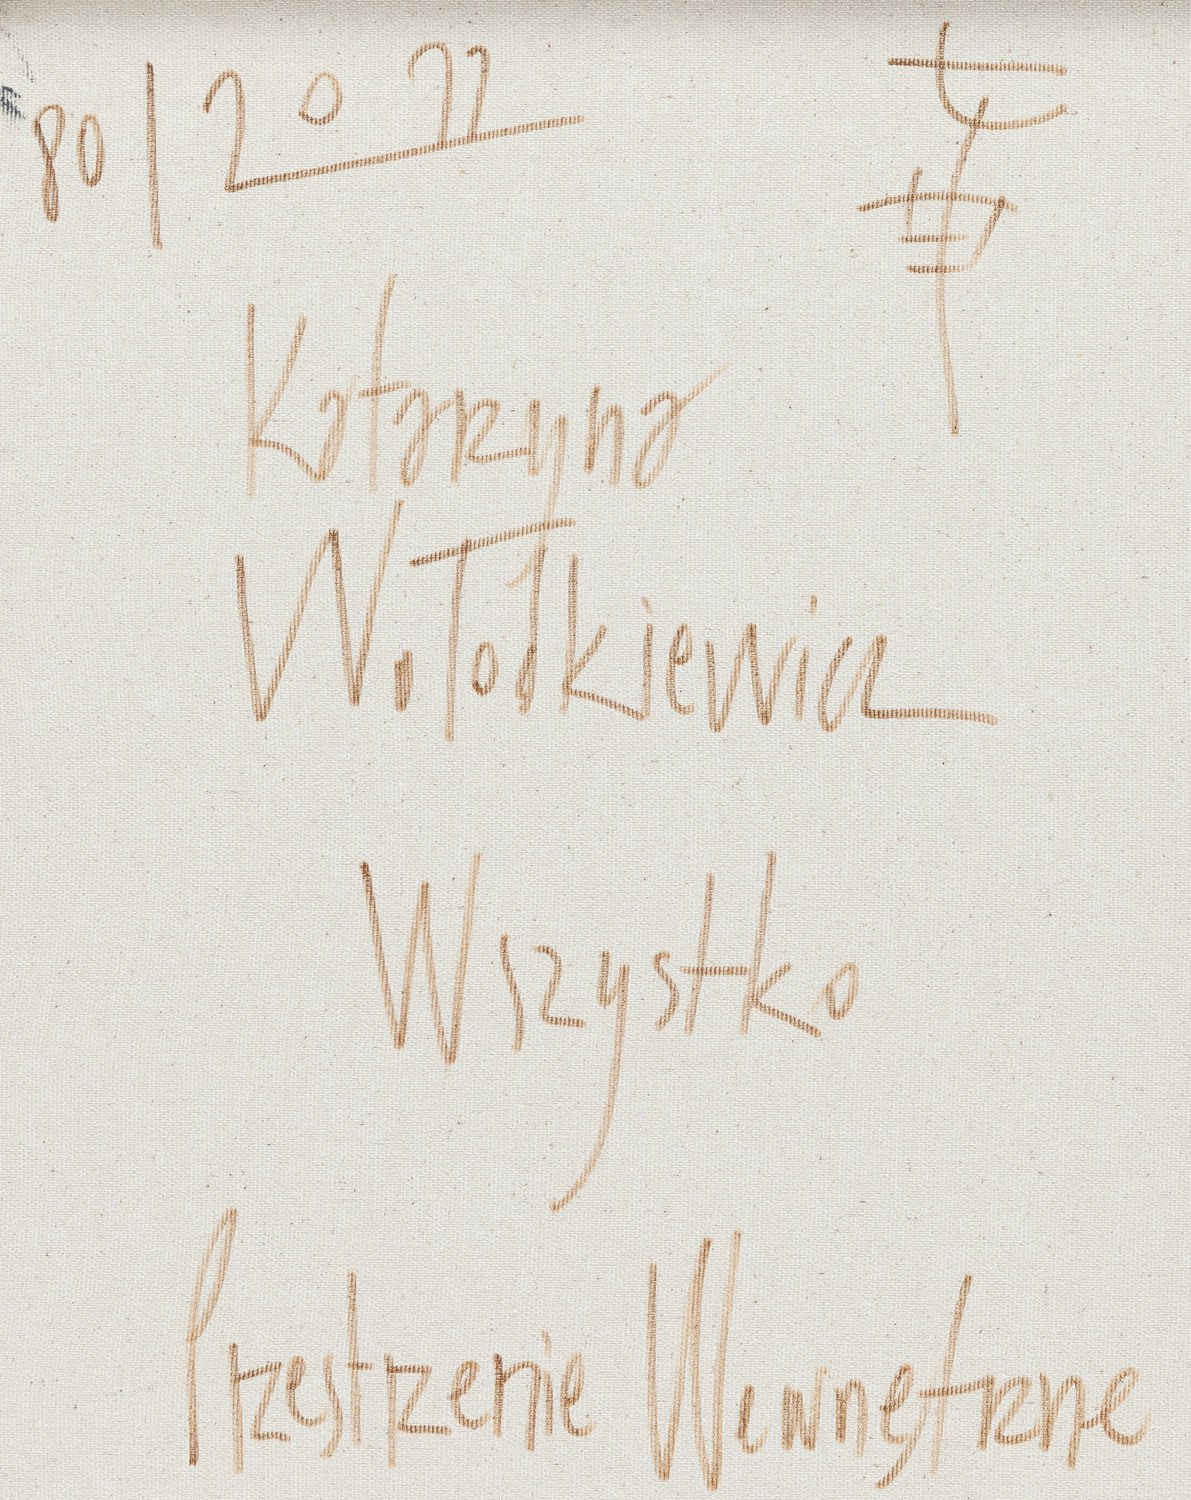 80 | 2022
Katarzyna
Wołodkiewicz
Wszystko
Przestrzenie Wewnętrzne